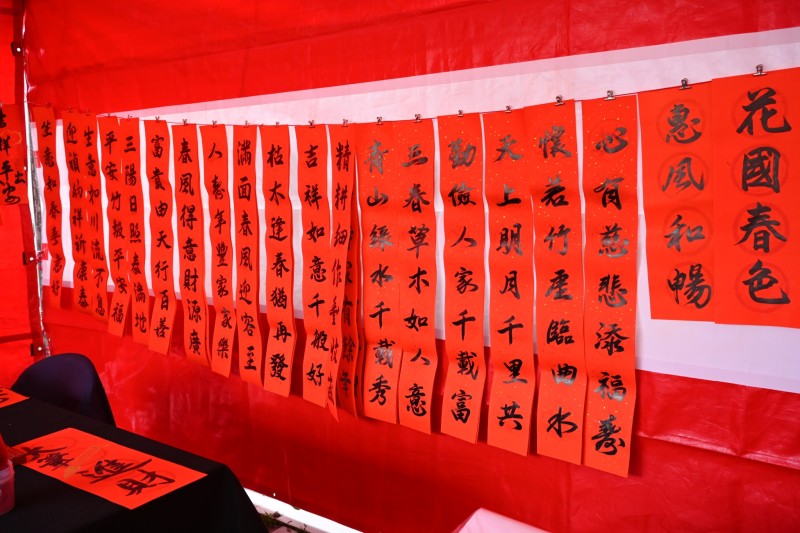 花國春色
惠風和暢
心有慈悲添福壽
懷若竹虛臨曲水
天上明月千里共
勤儉人家千載富
三春草木如人意
青山綠水千載秀
精耕細作手
吉祥如意千般好
枯木逢春猶再發
滿面春風迎客至
人壽年豐家家樂
春風得意財源廣
富貴由天行百善
三陽日照春滿地
平安竹報平安福
生意如川流不息
迎禎納祥祈康泰
生意如春
祥平安